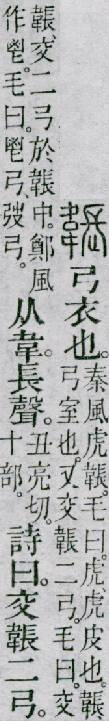 韔弓衣也。秦風虎韔毛曰。虎虎皮也。韔弓室也。又交韔二弓。毛曰。交
韔交二弓於韔中。鄭風作鬯。毛曰。鬯弓。弢弓。从韋。長聲。丑亮切。十部。詩曰。交韔二弓。